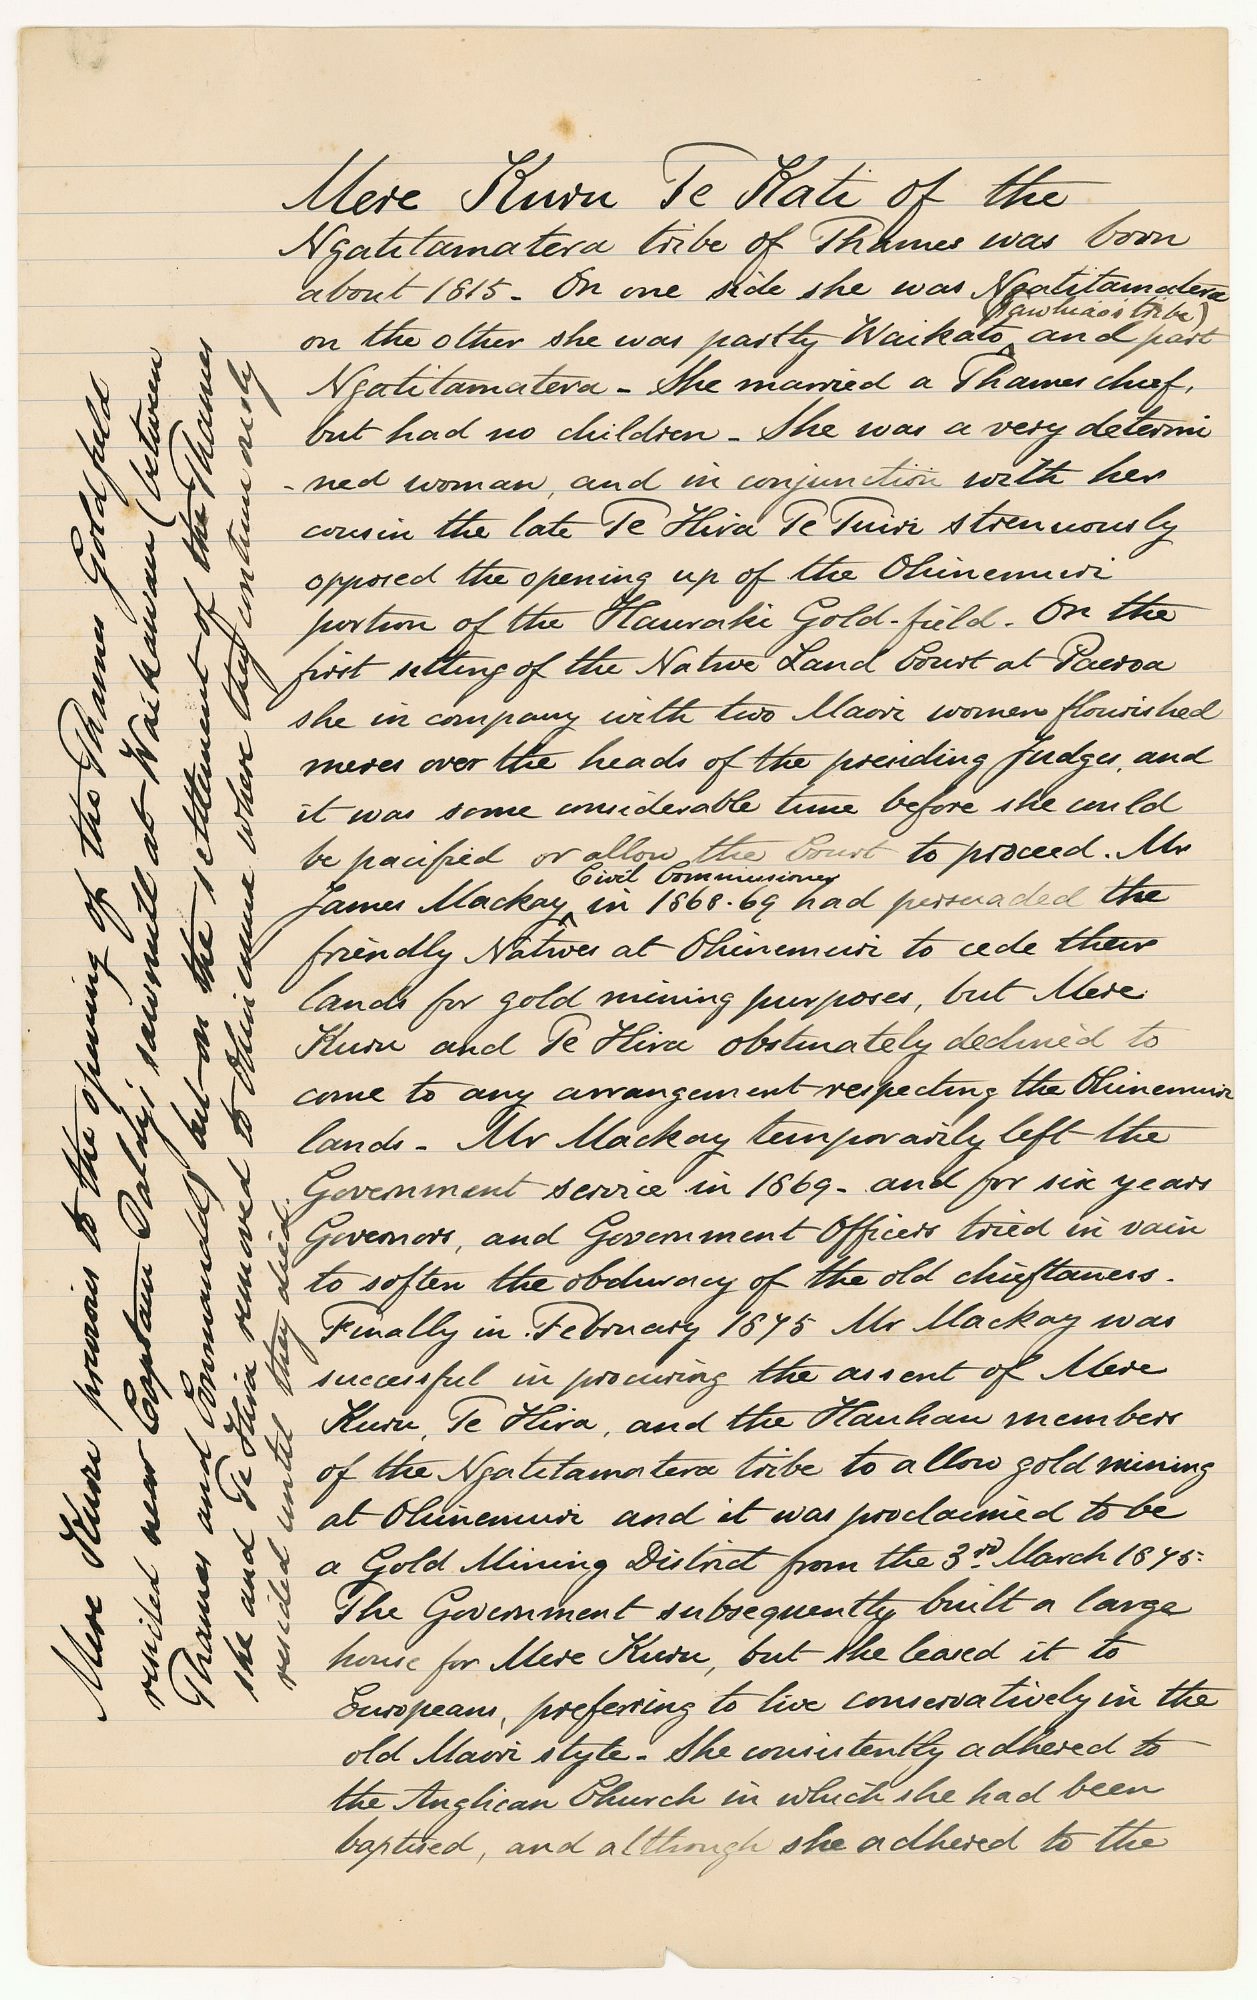 Mere Kuru Te Kati of the
Ngatitamatera tribe of Thames was born
about 1815 - On one side she was Ngatitamatera
(Tawhiao's tribe)
on the other she was partly Waikato ^ and part
Ngatitamatera - She married a Thames chief,
but had no children - She was a very determi
- ned woman, and in conjunction with her
cousin the late Te Hira Te Tuiri strenuously
opposed the opening up of the Ohinemuri
portion of the Hauraki Gold-field - On the
first sitting of the Native Land Court at Paeroa
she in company with two Maori women flourished
meres over the heads of the presiding Judges, and
it was some considerable time before she could
be pacified or allow the Court to proceed. Mr
Civil Commissioner
James Mackay ^ in 1868-69 had persuaded the
friendly Natives at Ohinemuri to cede their
lands for gold mining purposes, but Mere
Kuru and Te Hira obstinately declined to
come to any arrangement respecting the Ohinemuri
lands - Mr Mackay temporarily left the
Government service in 1869 - and for six years
Governors, and Government Officers tried in vain
to soften the obduracy of the old chieftaness.
Finally in February 1875 Mr Mackay was
successful in procuring the assent of Mere
Kuru, Te Hira, and the Hauhau members
of the Ngatitamatera tribe to allow gold mining
at Ohinemuri and it was proclaimed to be
a Gold Mining District from the 3rd March 1875.
The Government subsequently built a large
house for Mere Kuru, but she leased it to
Europeans, preferring to live conservatively in the
old Maori style - She consistently adhered to
the Anglican Church in which she had been
baptised, and although she adhered to the
Mere Kuru previous to the opening of the Thames Gold field
resided near Captain Daldy's sawmills at Waikawau (between
Thames and Coromandel) but on the settlement of the Thames
she and Te Hira removed to Ohinemuri where they continuously
resided until they died.